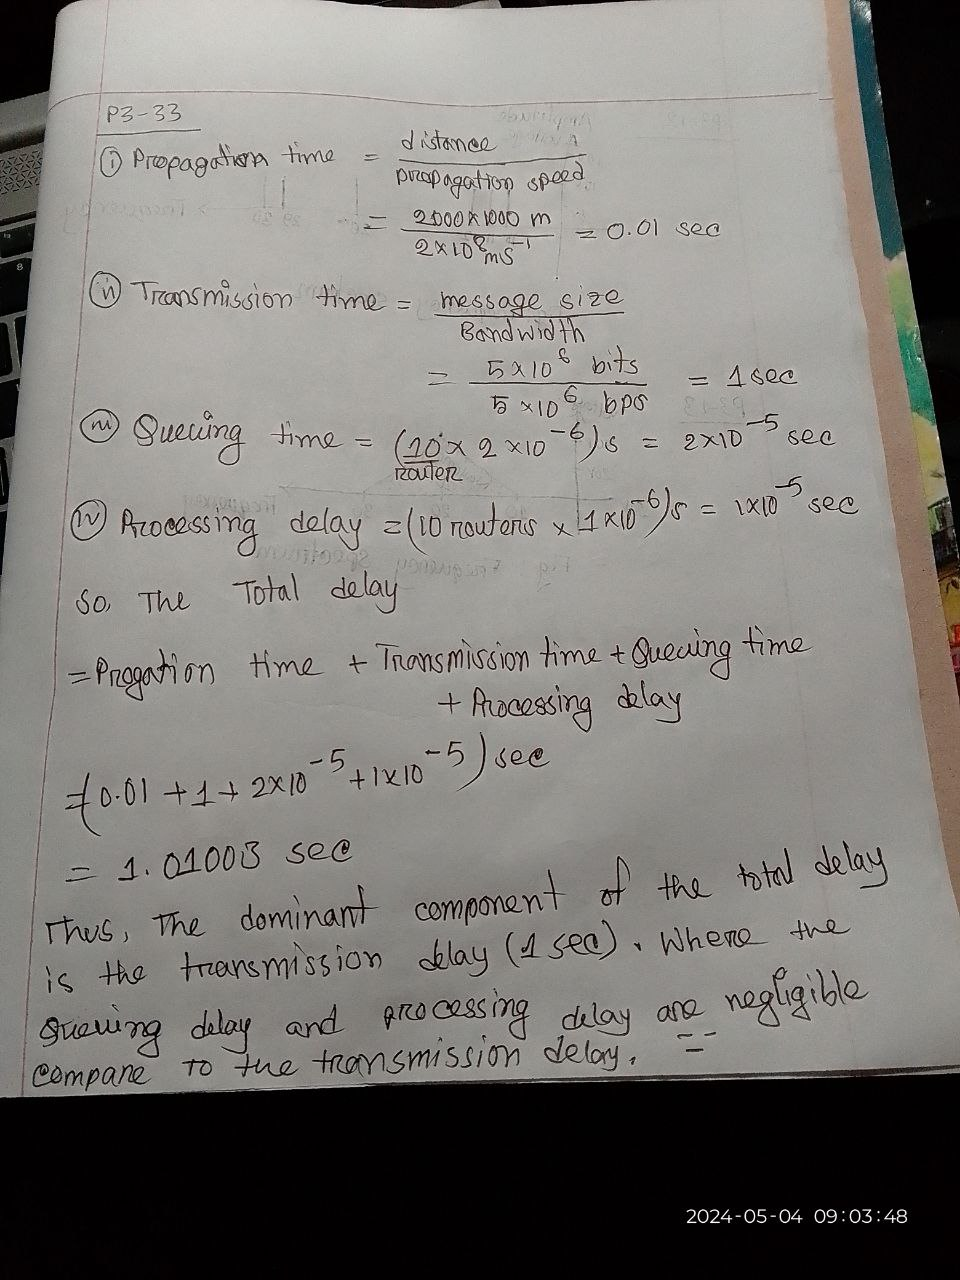 P3-33
(i) Propagation time = distance / propagation speed
= 2000×1000 m / 2×10⁸ ms⁻¹ = 0.01 sec
(ii) Transmission time = message size / Bandwidth
= 5×10⁶ bits / 5×10⁶ bps = 1 sec
(iii) Queuing time = (10 × 2×10⁻⁶)s = 2×10⁻⁵ sec
router
(iv) Processing delay = (10 routers × 1×10⁻⁶)s = 1×10⁻⁵ sec
So, The Total delay
= Progation time + Transmission time + Queuing time
+ Processing delay
= (0.01 + 1 + 2×10⁻⁵ + 1×10⁻⁵) sec
= 1.01003 sec
Thus, The dominant component of the total delay
is the transmission delay (1 sec). Where the
Queuing delay and processing delay are negligible
compare to the transmission delay.
2024-05-04 09:03:48